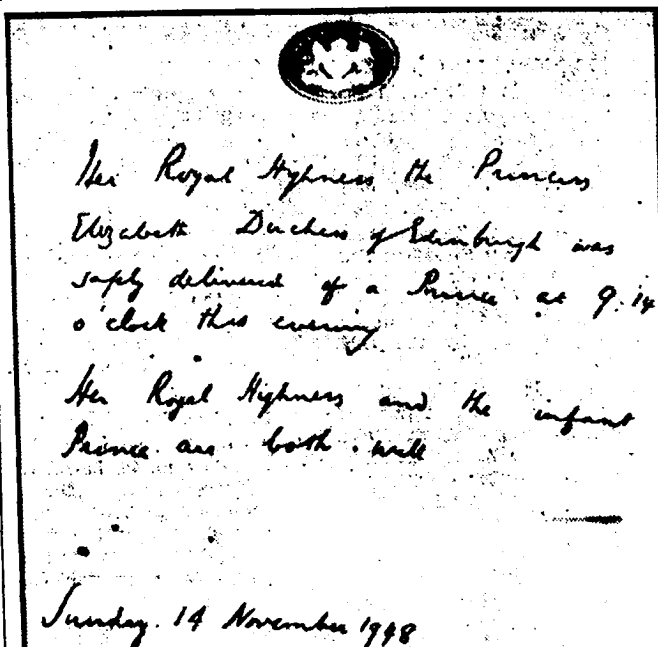 Her Royal Highness the Princess
Elizabeth Duchess of Edinburgh was
safely delivered of a Prince at 9.14
o'clock this evening
Her Royal Highness and the infant
Prince are both well
Sunday. 14 November 1948